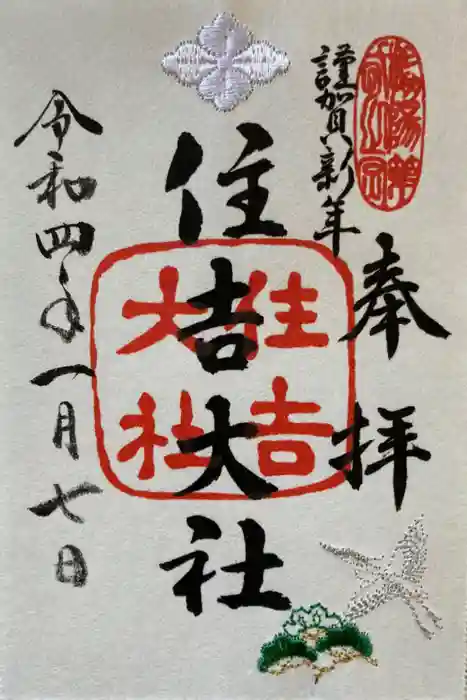 奉拝
謹賀新年
住吉大社
住吉
大社
令和四年一月七日